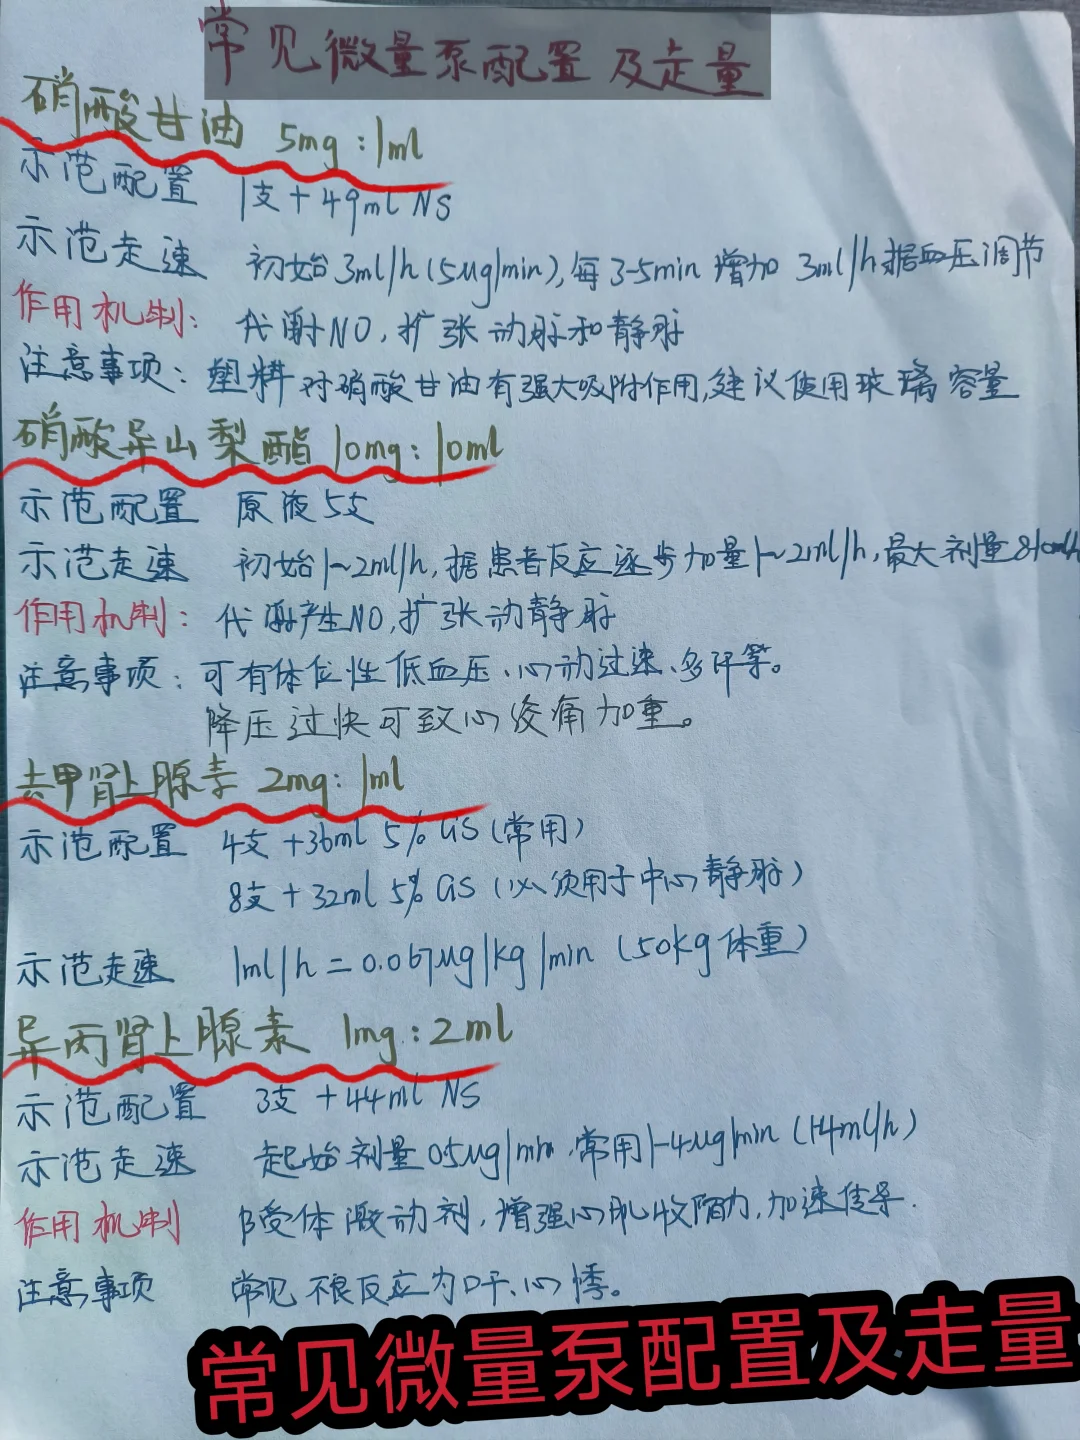 常见微量泵配置及走量
硝酸甘油 5mg:1ml
示范配置 1支+49ml NS
示范走速 初始3ml/h(5ug/min),每3-5min 增加 3ml/h据血压调节
作用机制: 代谢NO,扩张动脉和静脉
注意事项: 塑料对硝酸甘油有强大吸附作用,建议使用玻璃容量
硝酸异山梨酯 10mg:10ml
示范配置 原液5支
示范走速 初始1~2ml/h,据患者反应逐步加量1~2ml/h,最大剂量
作用机制: 代谢产生NO,扩张动静脉
注意事项: 可有体位性低血压、心动过速、多汗等。
降压过快可致心绞痛加重。
去甲肾上腺素 2mg:1ml
示范配置 4支+36ml 5% GS(常用)
8支+32ml 5% GS(必须用于中心静脉)
示范走速 1ml/h=0.067ug/kg/min (50kg体重)
异丙肾上腺素 1mg:2ml
示范配置 3支+44ml NS
示范走速 起始剂量0.5ug/min,常用1-4ug/min (1-4ml/h)
作用机制 β受体激动剂,增强心肌收缩力,加速传导.
注意事项 常见不良反应为口干、心悸。
常见微量泵配置及走量